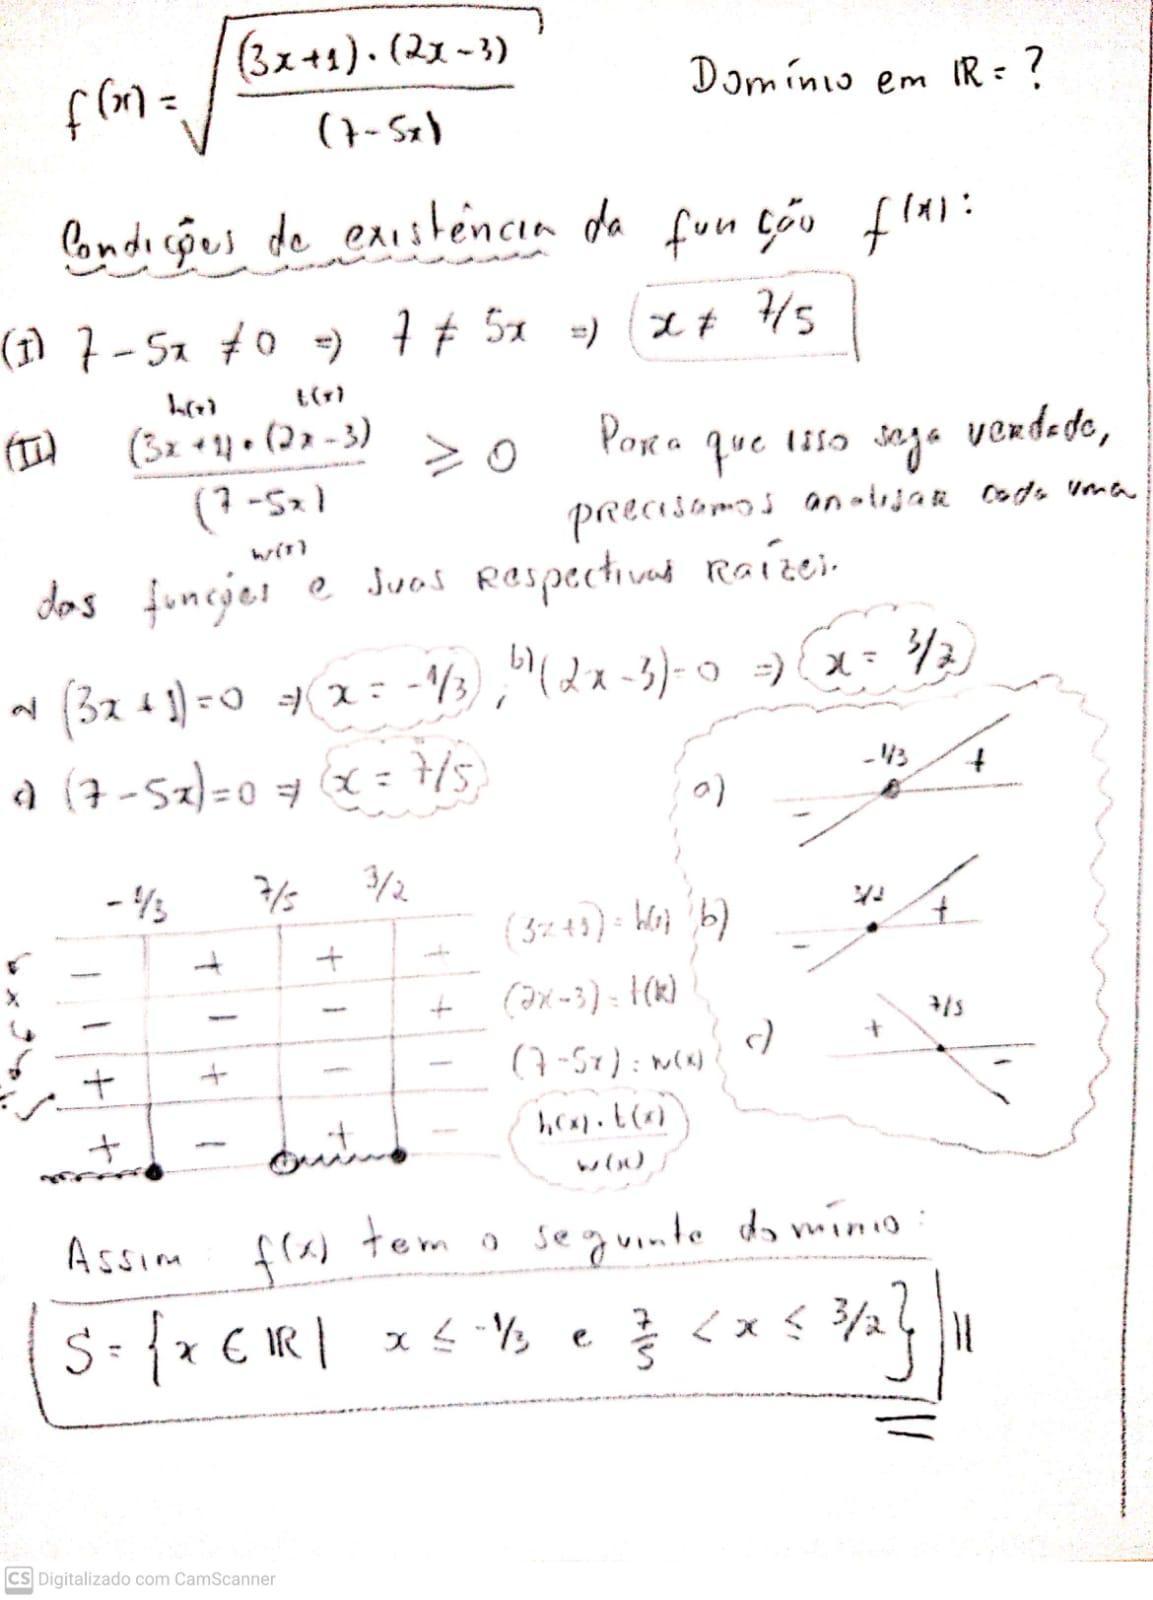 f(x) = √((3x+1)·(2x-3)/(7-5x)) Domínio em IR = ?
Condições de existência da função f(x):
(I) 7-5x ≠ 0 => 7 ≠ 5x => x ≠ 7/5
h(x) t(x)
(II) (3x+1)·(2x-3)/(7-5x) ≥ 0 Para que isso seja verdade,
precisamos analisar cada uma
w(x)
das funções e suas respectivas raízes.
a) (3x+1)=0 => x = -1/3, b) (2x-3)=0 => x = 3/2
c) (7-5x)=0 => x = 7/5
a) -1/3 + -
b) 3/2 + -
c) 7/5 + -
-1/3 7/5 3/2
- + + + (3x+1) = h(x)
- - - + (2x-3) = t(x)
+ + - - (7-5x) = w(x)
+ - + - h(x)·t(x)/w(x)
Assim: f(x) tem o seguinte domínio:
S = {x ∈ IR | x ≤ -1/3 e 7/5 < x ≤ 3/2} //
CS Digitalizado com CamScanner